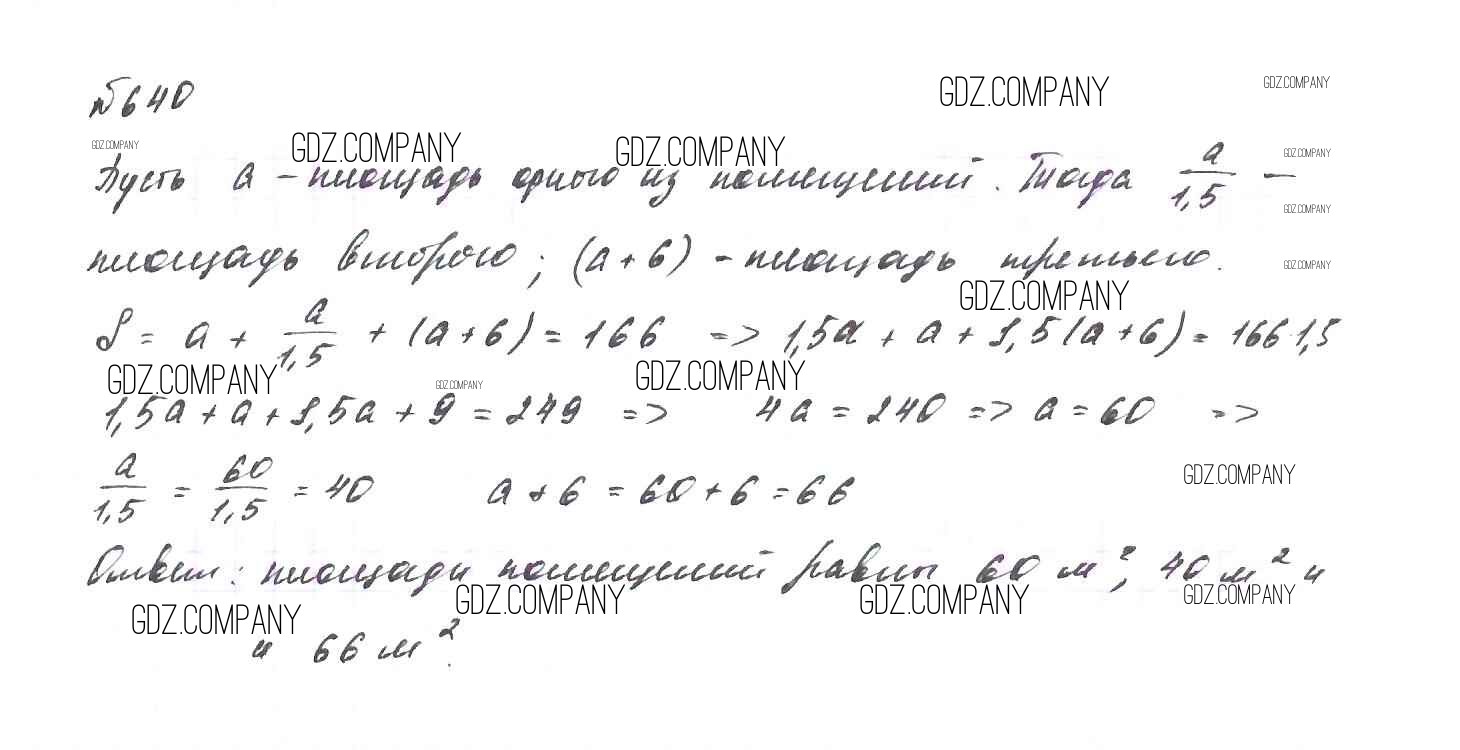 №640
GDZ.COMPANY GDZ.COMPANY
GDZ.COMPANY GDZ.COMPANY GDZ.COMPANY GDZ.COMPANY
Пусть a – площадь одного из помещений. Тогда a/1,5 –
GDZ.COMPANY
площадь второго; (a+6) – площадь третьего.
GDZ.COMPANY
GDZ.COMPANY
S = a + a/1,5 + (a+6) = 166 => 1,5a + a + 1,5(a+6) = 166·1,5
GDZ.COMPANY GDZ.COMPANY GDZ.COMPANY
1,5a + a + 1,5a + 9 = 249 => 4a = 240 => a = 60 =>
GDZ.COMPANY
a/1,5 = 60/1,5 = 40 a + 6 = 60 + 6 = 66
Ответ: площади помещений равны 60 м², 40 м² и
GDZ.COMPANY GDZ.COMPANY GDZ.COMPANY GDZ.COMPANY
и 66 м².